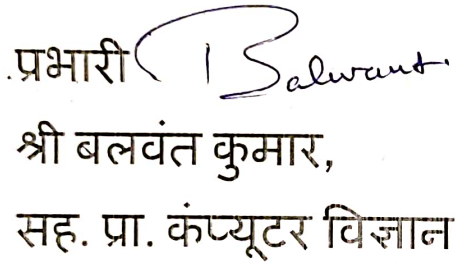 .प्रभारी Balwant.
श्री बलवंत कुमार,
सह. प्रा. कंप्यूटर विज्ञान